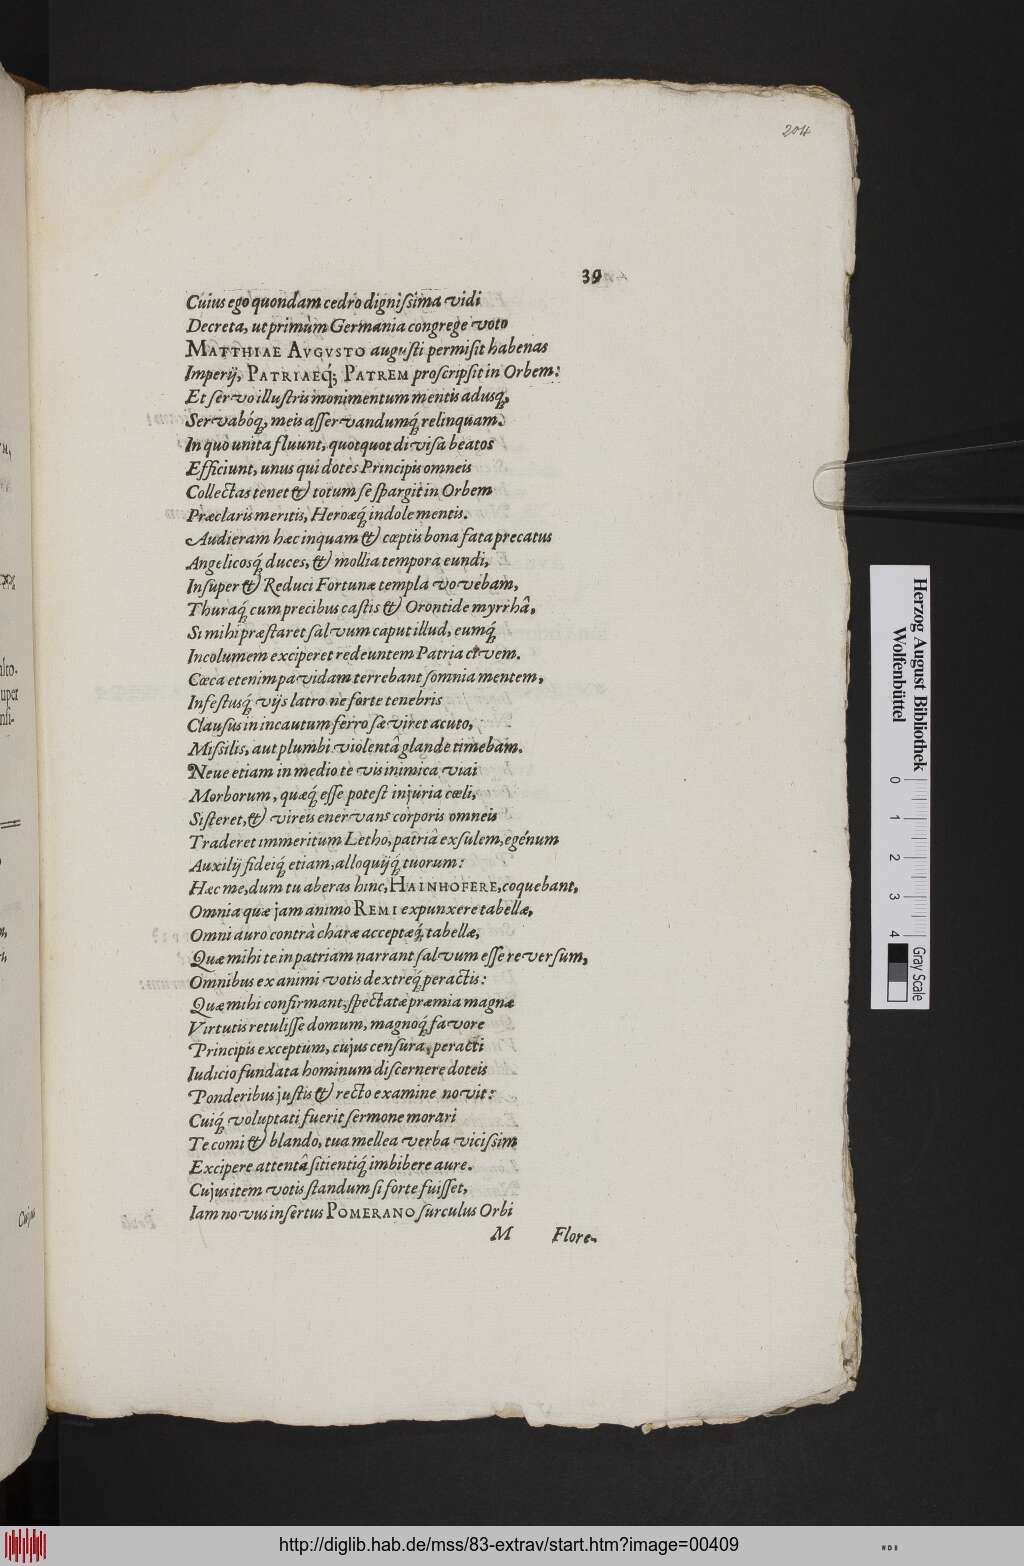 204
39
Cuius ego quondam cedro digniſsima vidi
Decreta, ut primùm Germania congrege voto
MATTHIAE AVGVSTO auguſti permiſit habenas
Imperij, PATRIAEq́; PATREM proſcripſit in Orbem:
Et ſervo illuſtris monimentum mentis adusq́,
Servabóq́, meis aſſervandumq́ relinquam.
In quo unita fluunt, quotquot diviſa beatos
Efficiunt, unus qui dotes Principis omneis
Collectas tenet & totum ſe ſpargit in Orbem
Præclaris meritis, Heroæq́ indole mentis.
Audieram hæc inquam & cœptis bona fata precatus
Angelicosq́ duces, & mollia tempora eundi,
Inſuper & Reduci Fortunæ templa vovebam,
Thuraq́ cum precibus caſtis & Orontide myrrhâ,
Si mihi præſtaret ſalvum caput illud, eumq́
Incolumem exciperet redeuntem Patria civem.
Cæca etenim pavidam terrebant ſomnia mentem,
Infeſtusq́ vijs latro ne forte tenebris
Clauſus in incautum ferro ſæviret acuto,
Miſsilis, aut plumbi violentâ glande timebam.
Neue etiam in medio te vis inimica viai
Morborum, quæq́ eſſe poteſt injuria cœli,
Siſteret, & vireis enervans corporis omneis
Traderet immeritum Letho, patriâ exſulem, egénum
Auxilij fideiq́ etiam, alloquijq́ tuorum:
Hæc me, dum tu aberas hinc, HAINHOFERE, coquebant,
Omnia quæ jam animo REMI expunxere tabellæ,
Omni auro contrà charæ acceptæq́ tabellæ,
Quæ mihi te in patriam narrant ſalvum eſſe reverſum,
Omnibus ex animi votis dextreq́ peractis:
Quæ mihi confirmant, ſpectatæ præmia magnæ
Virtutis retuliſſe domum, magnoq́ favore
Principis exceptum, cujus cenſura, peracti
Iudicio fundata hominum diſcernere doteis
Ponderibus juſtis & recto examine novit:
Cuiq́ voluptati fuerit ſermone morari
Te comi & blando, tua mellea verba viciſsim
Excipere attentâ ſitientiq́ imbibere aure.
Cujus item votis ſtandum ſi forte fuiſſet,
Iam novus inſertus POMERANO ſurculus Orbi
M Flore-
Herzog August Bibliothek
Wolfenbüttel
0 1 2 3 4
Gray Scale
http://diglib.hab.de/mss/83-extrav/start.htm?image=00409